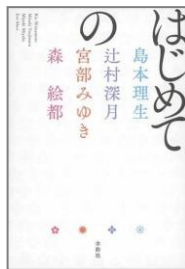 はじめての
島本理生
辻村深月
宮部みゆき
森 絵都